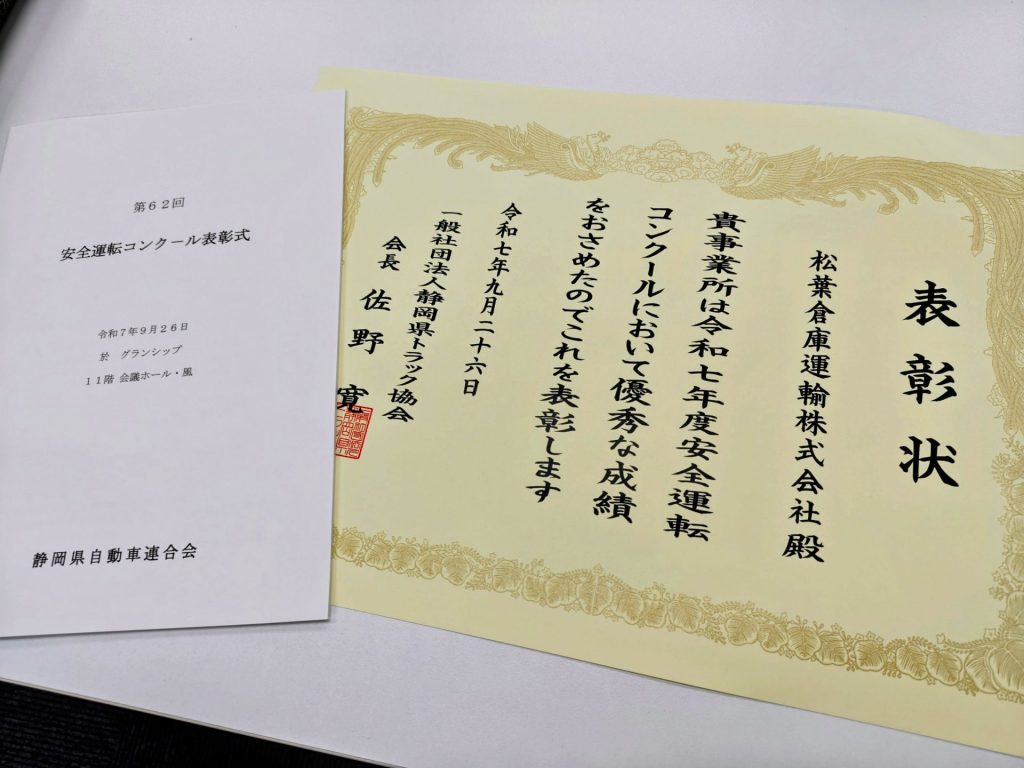 第62回
安全運転コンクール表彰式
令和7年9月26日
於 グランシップ
11階 会議ホール・風
静岡県自動車連合会
表彰状
松葉倉庫運輸株式会社殿
貴事業所は令和七年度安全運転
コンクールにおいて優秀な成績
をおさめたのでこれを表彰します
令和七年九月二十六日
一般社団法人静岡県トラック協会
会長 佐野寛